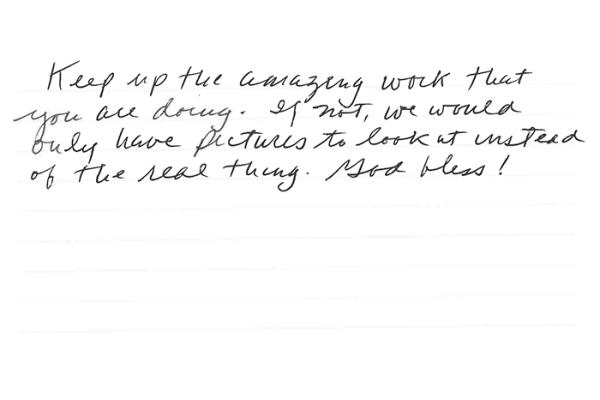 Keep up the amazing work that
you are doing. If not, we would
only have pictures to look at instead
of the real thing. God bless!